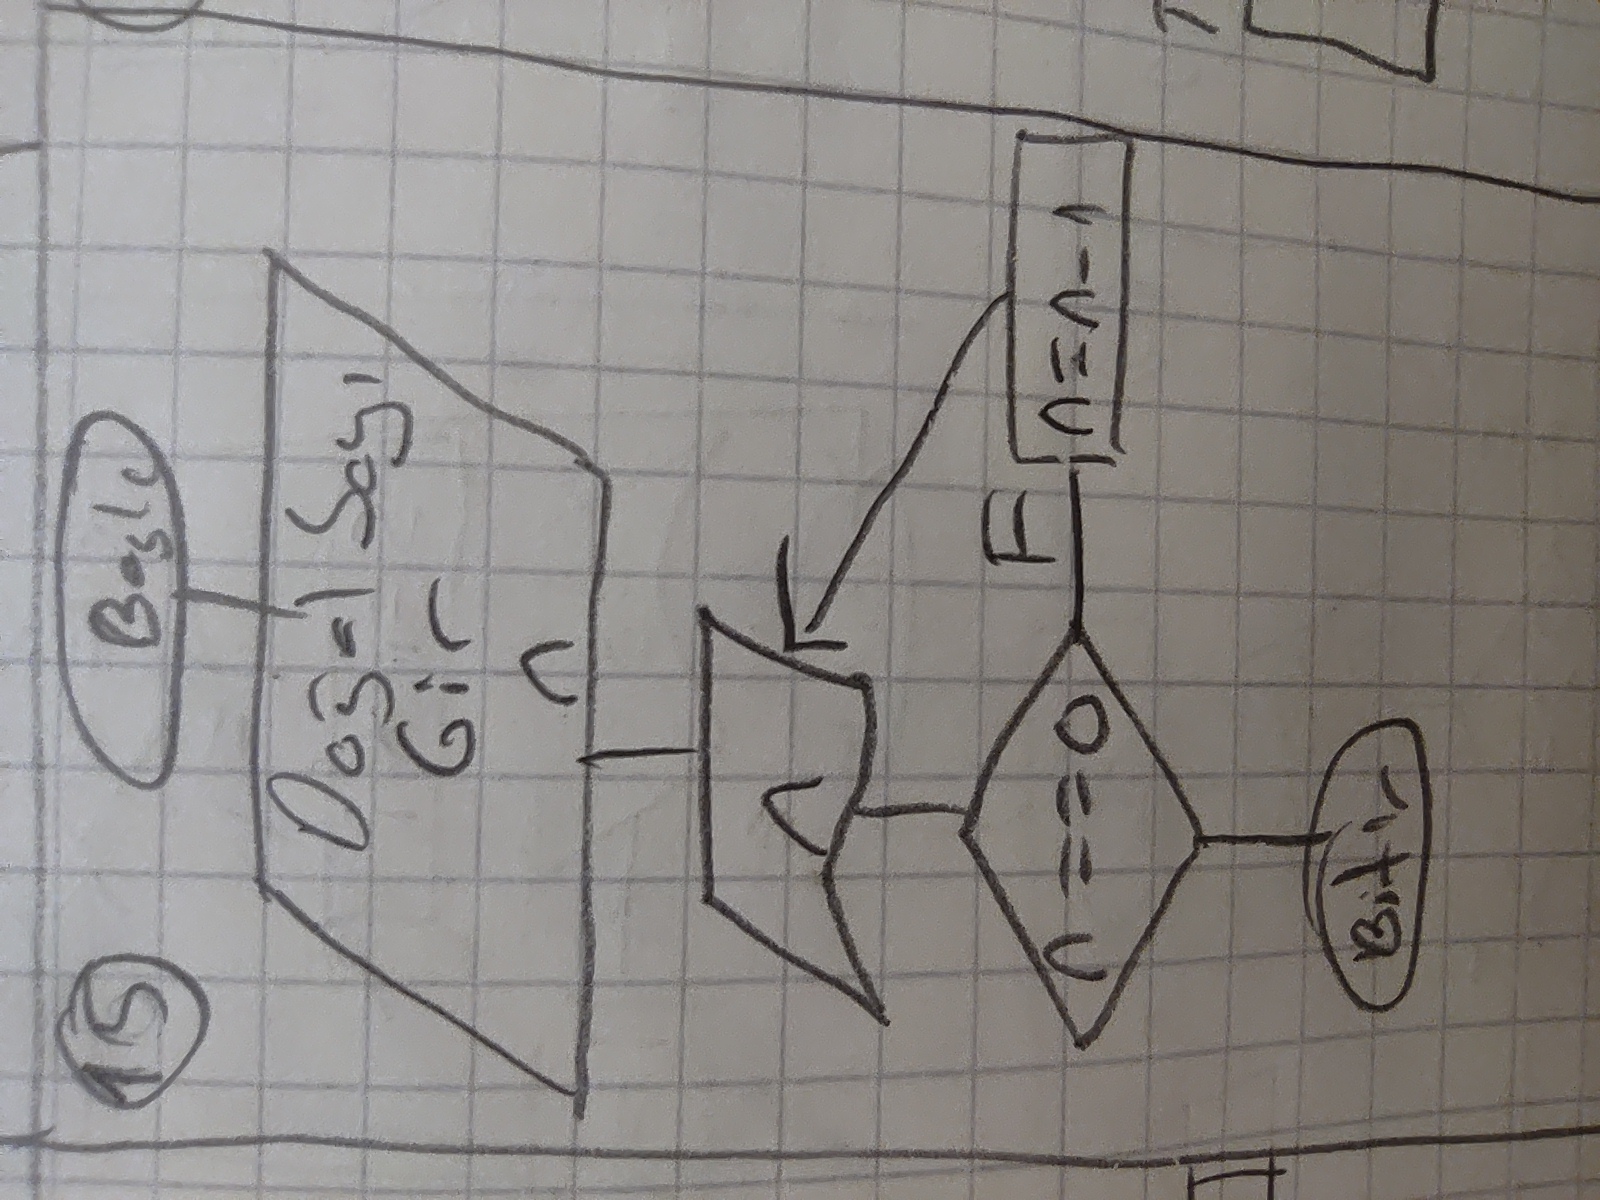 15
Başla
Doğal Sayı
Gir
n
n
n==0
F
n=n-1
Bitir